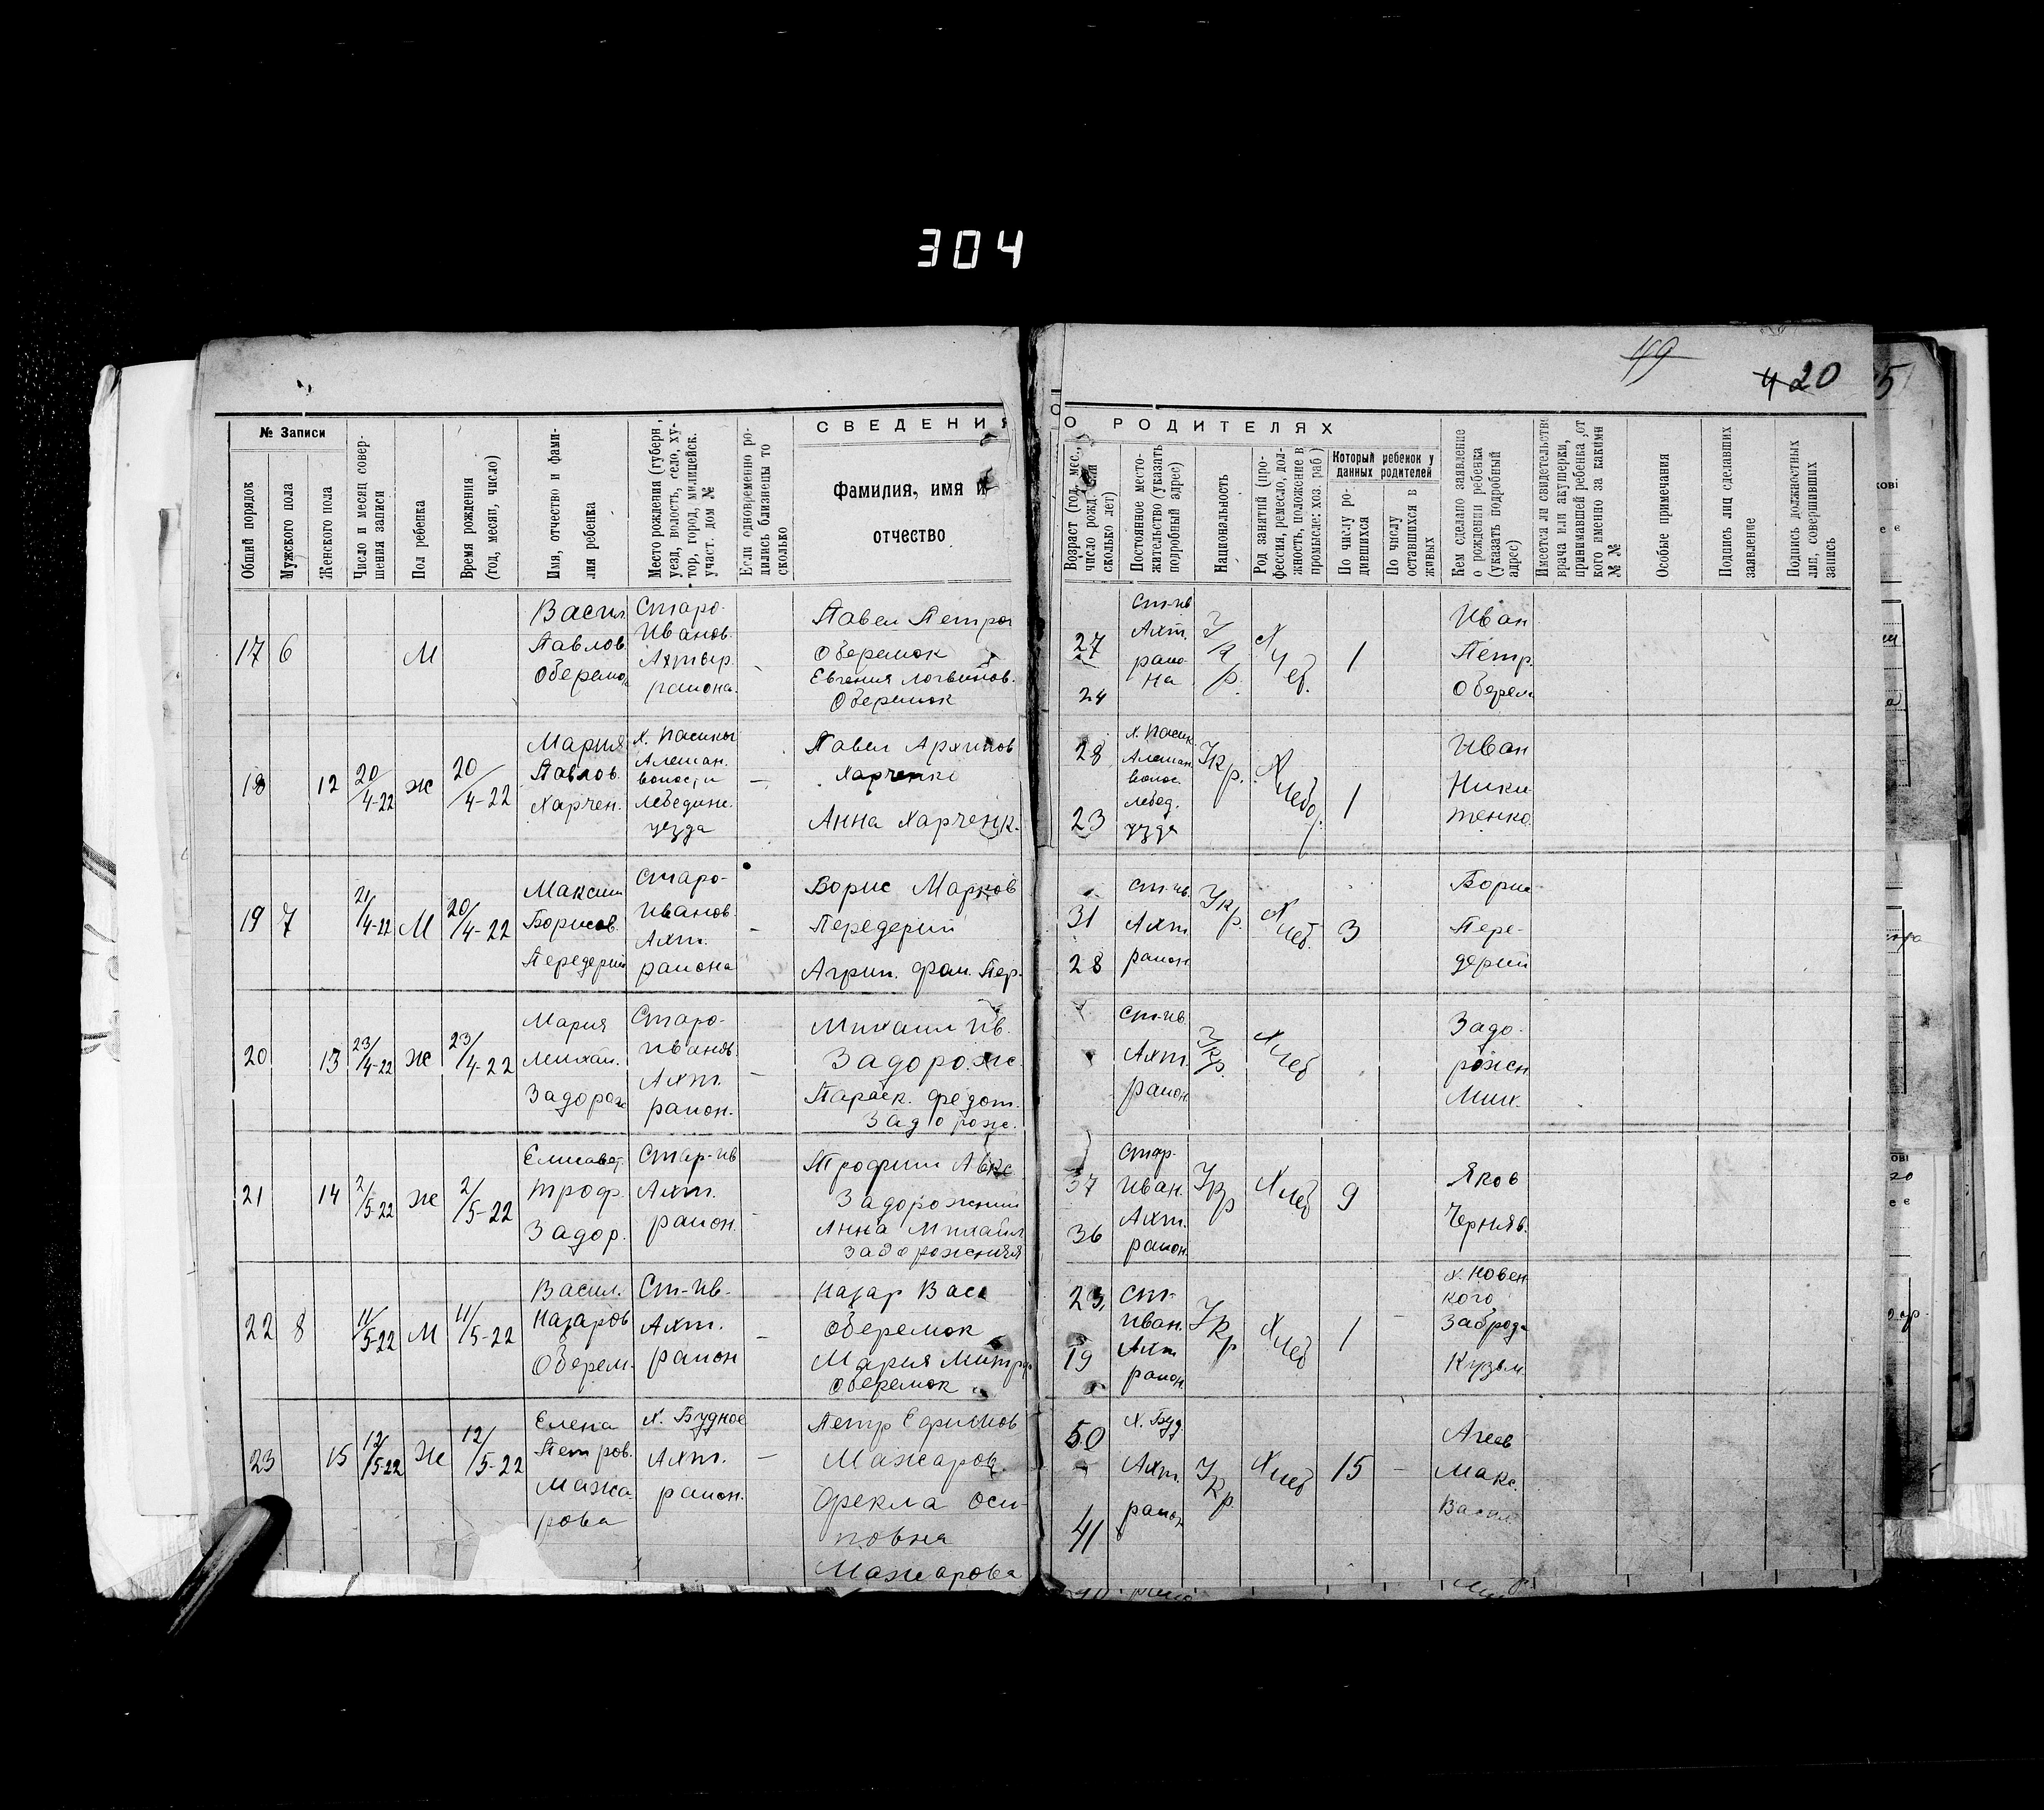 304
49
4 20
5
№ Записи
Общий порядок
Мужского пола
Женского пола
Число и месяц совер-
шения записи
Пол ребенка
Время рождения
(год, месяц, число)
Имя, отчество и фами-
лия ребенка
Место рождения (губерн.,
уезд, волость, село, ху-
тор, город, милицейск.
участ. дом №
Если одновременно ро-
дились близнецы то
сколько
СВЕДЕНИЯ
Фамилия, имя и
отчество
О РОДИТЕЛЯХ
Возраст (год, мес.,
число рожд.
сколько лет)
Постоянное место-
жительство (указать
подробный адрес)
Национальность
Род занятий (про-
фессия, ремесло, дол-
жность, положение в
промысле: хоз. раб.)
Который ребенок у
данных родителей
По числу ро-
дившихся
По числу
оставшихся в
живых
Кем сделано заявление
о рождении ребенка
(указать подробный
адрес)
Имеется ли свидетельство
врача или акушерки,
принимавшей ребенка, от
кого именно за какими
№ №
Особые примечания
Подпись лиц сделавших
заявление
Подпись должностных
лиц, совершивших
запись
17 6 М
Васил.
Павлов.
Оберемо
Старо-
Иванов.
Ахтыр.
района.
Павел Петров
Оберемок
Евгения Логвинов.
Оберемок
27
24
ст-ив
Ахт.
райо-
на
Укр.
Хлеб.
1
Иван
Петр.
Оберем
18 12 20/4-22 ж 20/4-22
Мария
Павлов.
Харчен.
х. Пасики
Алешан.
волости
Лебедин.
уезда
—
Павел Архипов
Харченко
Анна Харченк.
28
23
х. Пасик
Алешан
волос.
Лебед.
уезда
Укр.
Хлебо.
1
Иван
Ники
тенко.
19 7 21/4-22 М 20/4-22
Максим
Борисов.
Передерий
Старо-
Иванов.
Ахт.
района
—
Борис Марков
Передерий
Агрип. Фом. Пер.
31
28
ст-ив.
Ахт
район
Укр.
Хлеб.
3
Борис
Пере-
дерий
20 13 23/4-22 ж 23/4-22
Мария
Михаил.
Задорож
Старо-
Иванов.
Ахт.
район.
—
Михаил Ив.
Задорож.
Параск. Федот.
Задорож.
ст-ив
Ахт.
район
Укр.
Хлеб
Задо-
рожн
Мих.
21 14 2/5-22 ж 2/5-22
Елисавет.
Троф.
Задор.
Стар-ив
Ахт.
район.
Трофим Авкс
Задорожний
Анна Михайл
Задорожняя
37
36
Стар-
Иван.
Ахт.
район
Укр
Хлеб
9
Яков
Черняв.
22 8 11/5-22 М 11/5-22
Васил.
Назаров
Оберем.
Ст-ив-
Ахт.
район
—
Назар Вас
Оберемок
Мария Митроф
Оберемок
23,
19
ст-
Иван.
Ахт
район
Укр
Хлеб
1
х. Новен
кого
Заброда
Кузьм
23 15 12/5-22 Ж 12/5-22
Елена
Петров.
Мажа
рова
х. Будное
Ахт.
район.
—
Петр Ефимов
Мажаров
Фекла Оси-
повна
Мажарова
50
41
х. Буд
Ахт.
район
Укр.
Хлеб
15
—
Агеев
Макс.
Васил.